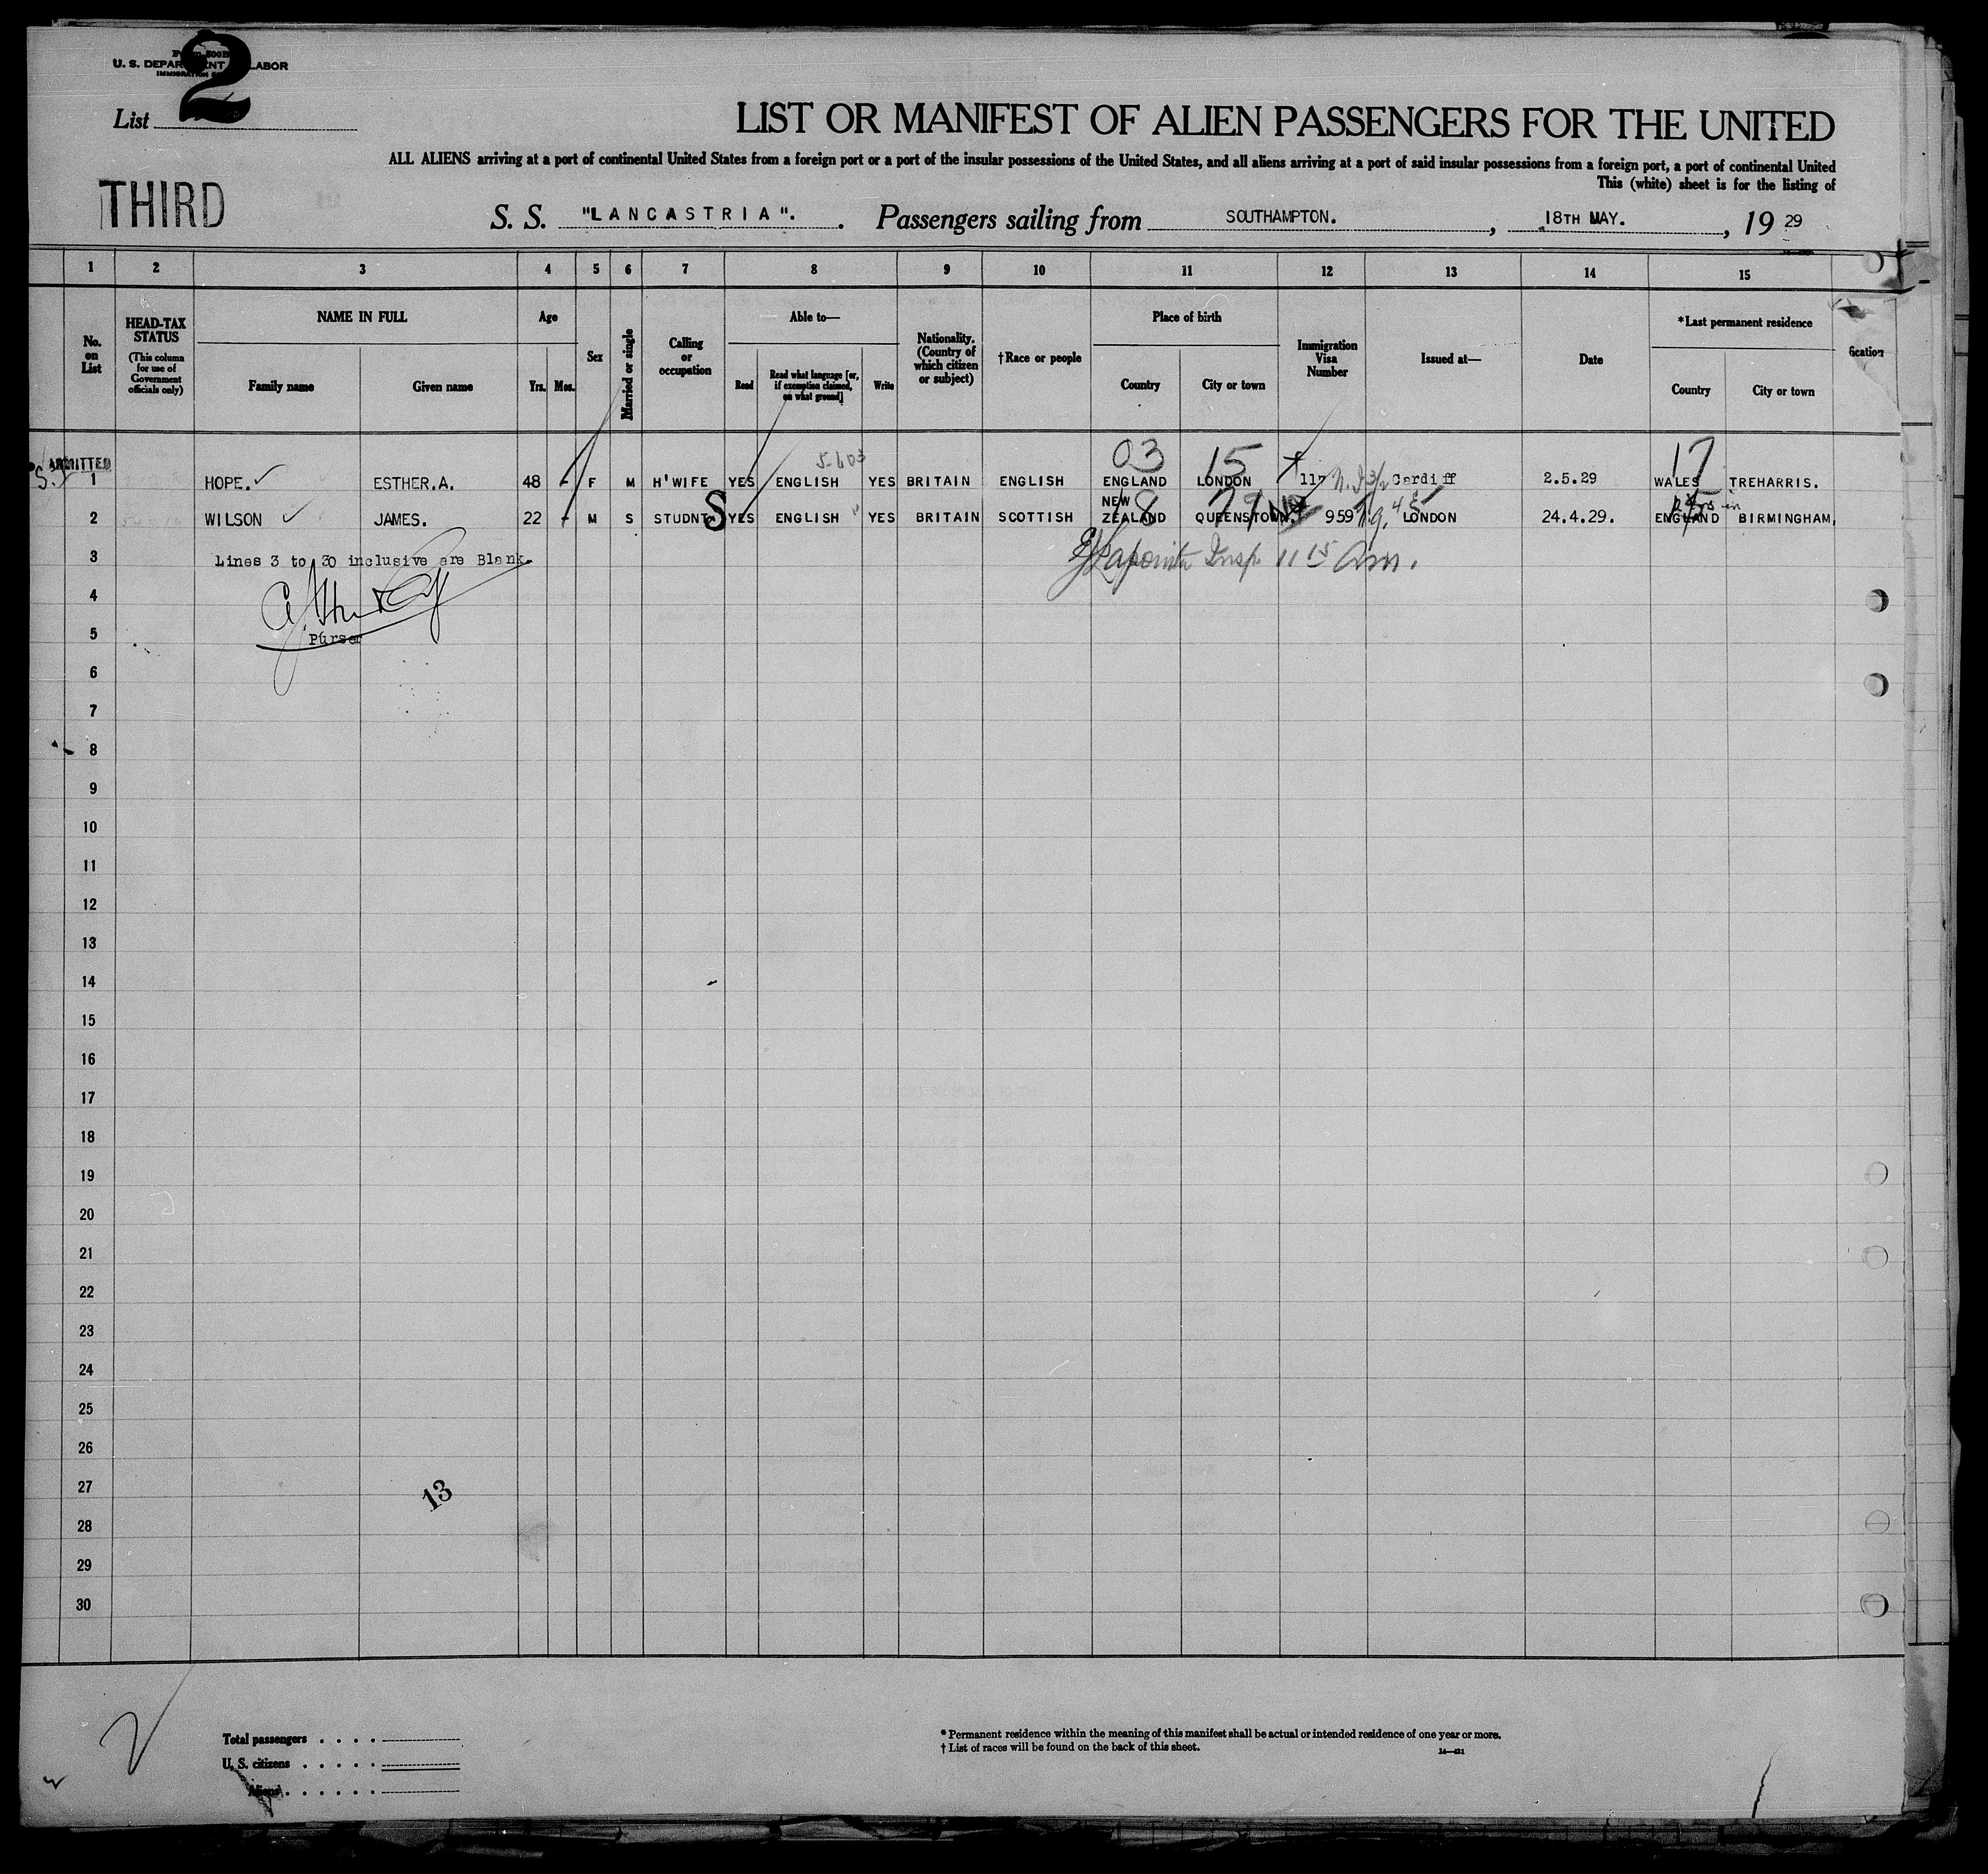 2
U. S. DEPARTMENT LABOR
List
LIST OR MANIFEST OF ALIEN PASSENGERS FOR THE UNITED
ALL ALIENS arriving at a port of continental United States from a foreign port or a port of the insular possessions of the United States, and all aliens arriving at a port of said insular possessions from a foreign port, a port of continental United
This (white) sheet is for the listing of
THIRD
S. S. "LANCASTRIA". Passengers sailing from SOUTHAMPTON. , 18TH MAY. , 19 29
1 2 3 4 5 6 7 8 9 10 11 12 13 14 15
No. on List
HEAD-TAX STATUS (This column for use of Government officials only)
NAME IN FULL
Family name Given name
Age
Yrs. Mos.
Sex
Married or single
Calling or occupation
Able to—
Read Read what language [or, if exemption claimed, on what ground] Write
Nationality. (Country of which citizen or subject)
†Race or people
Place of birth
Country City or town
Immigration Visa Number
Issued at—
Date
*Last permanent residence
Country City or town
fication
ADMITTED 5-603 03 15 17
1 HOPE. ESTHER.A. 48 - F M H'WIFE YES ENGLISH YES BRITAIN ENGLISH ENGLAND LONDON Cardiff 2.5.29 WALES TREHARRIS.
2 WILSON JAMES. 22 - M S STUDNT S YES ENGLISH YES BRITAIN SCOTTISH NEW ZEALAND QUEENSTOWN. 959 LONDON 24.4.29. ENGLAND BIRMINGHAM,
3 Lines 3 to 30 inclusive are Blank. Insp. 11 15 am.
4
5 Purser
6
7
8
9
10
11
12
13
14
15
16
17
18
19
20
21
22
23
24
25
26
27 13
28
29
30
Total passengers . . . .
U. S. citizens . . . . .
Aliens . . . . . .
* Permanent residence within the meaning of this manifest shall be actual or intended residence of one year or more.
† List of races will be found on the back of this sheet.